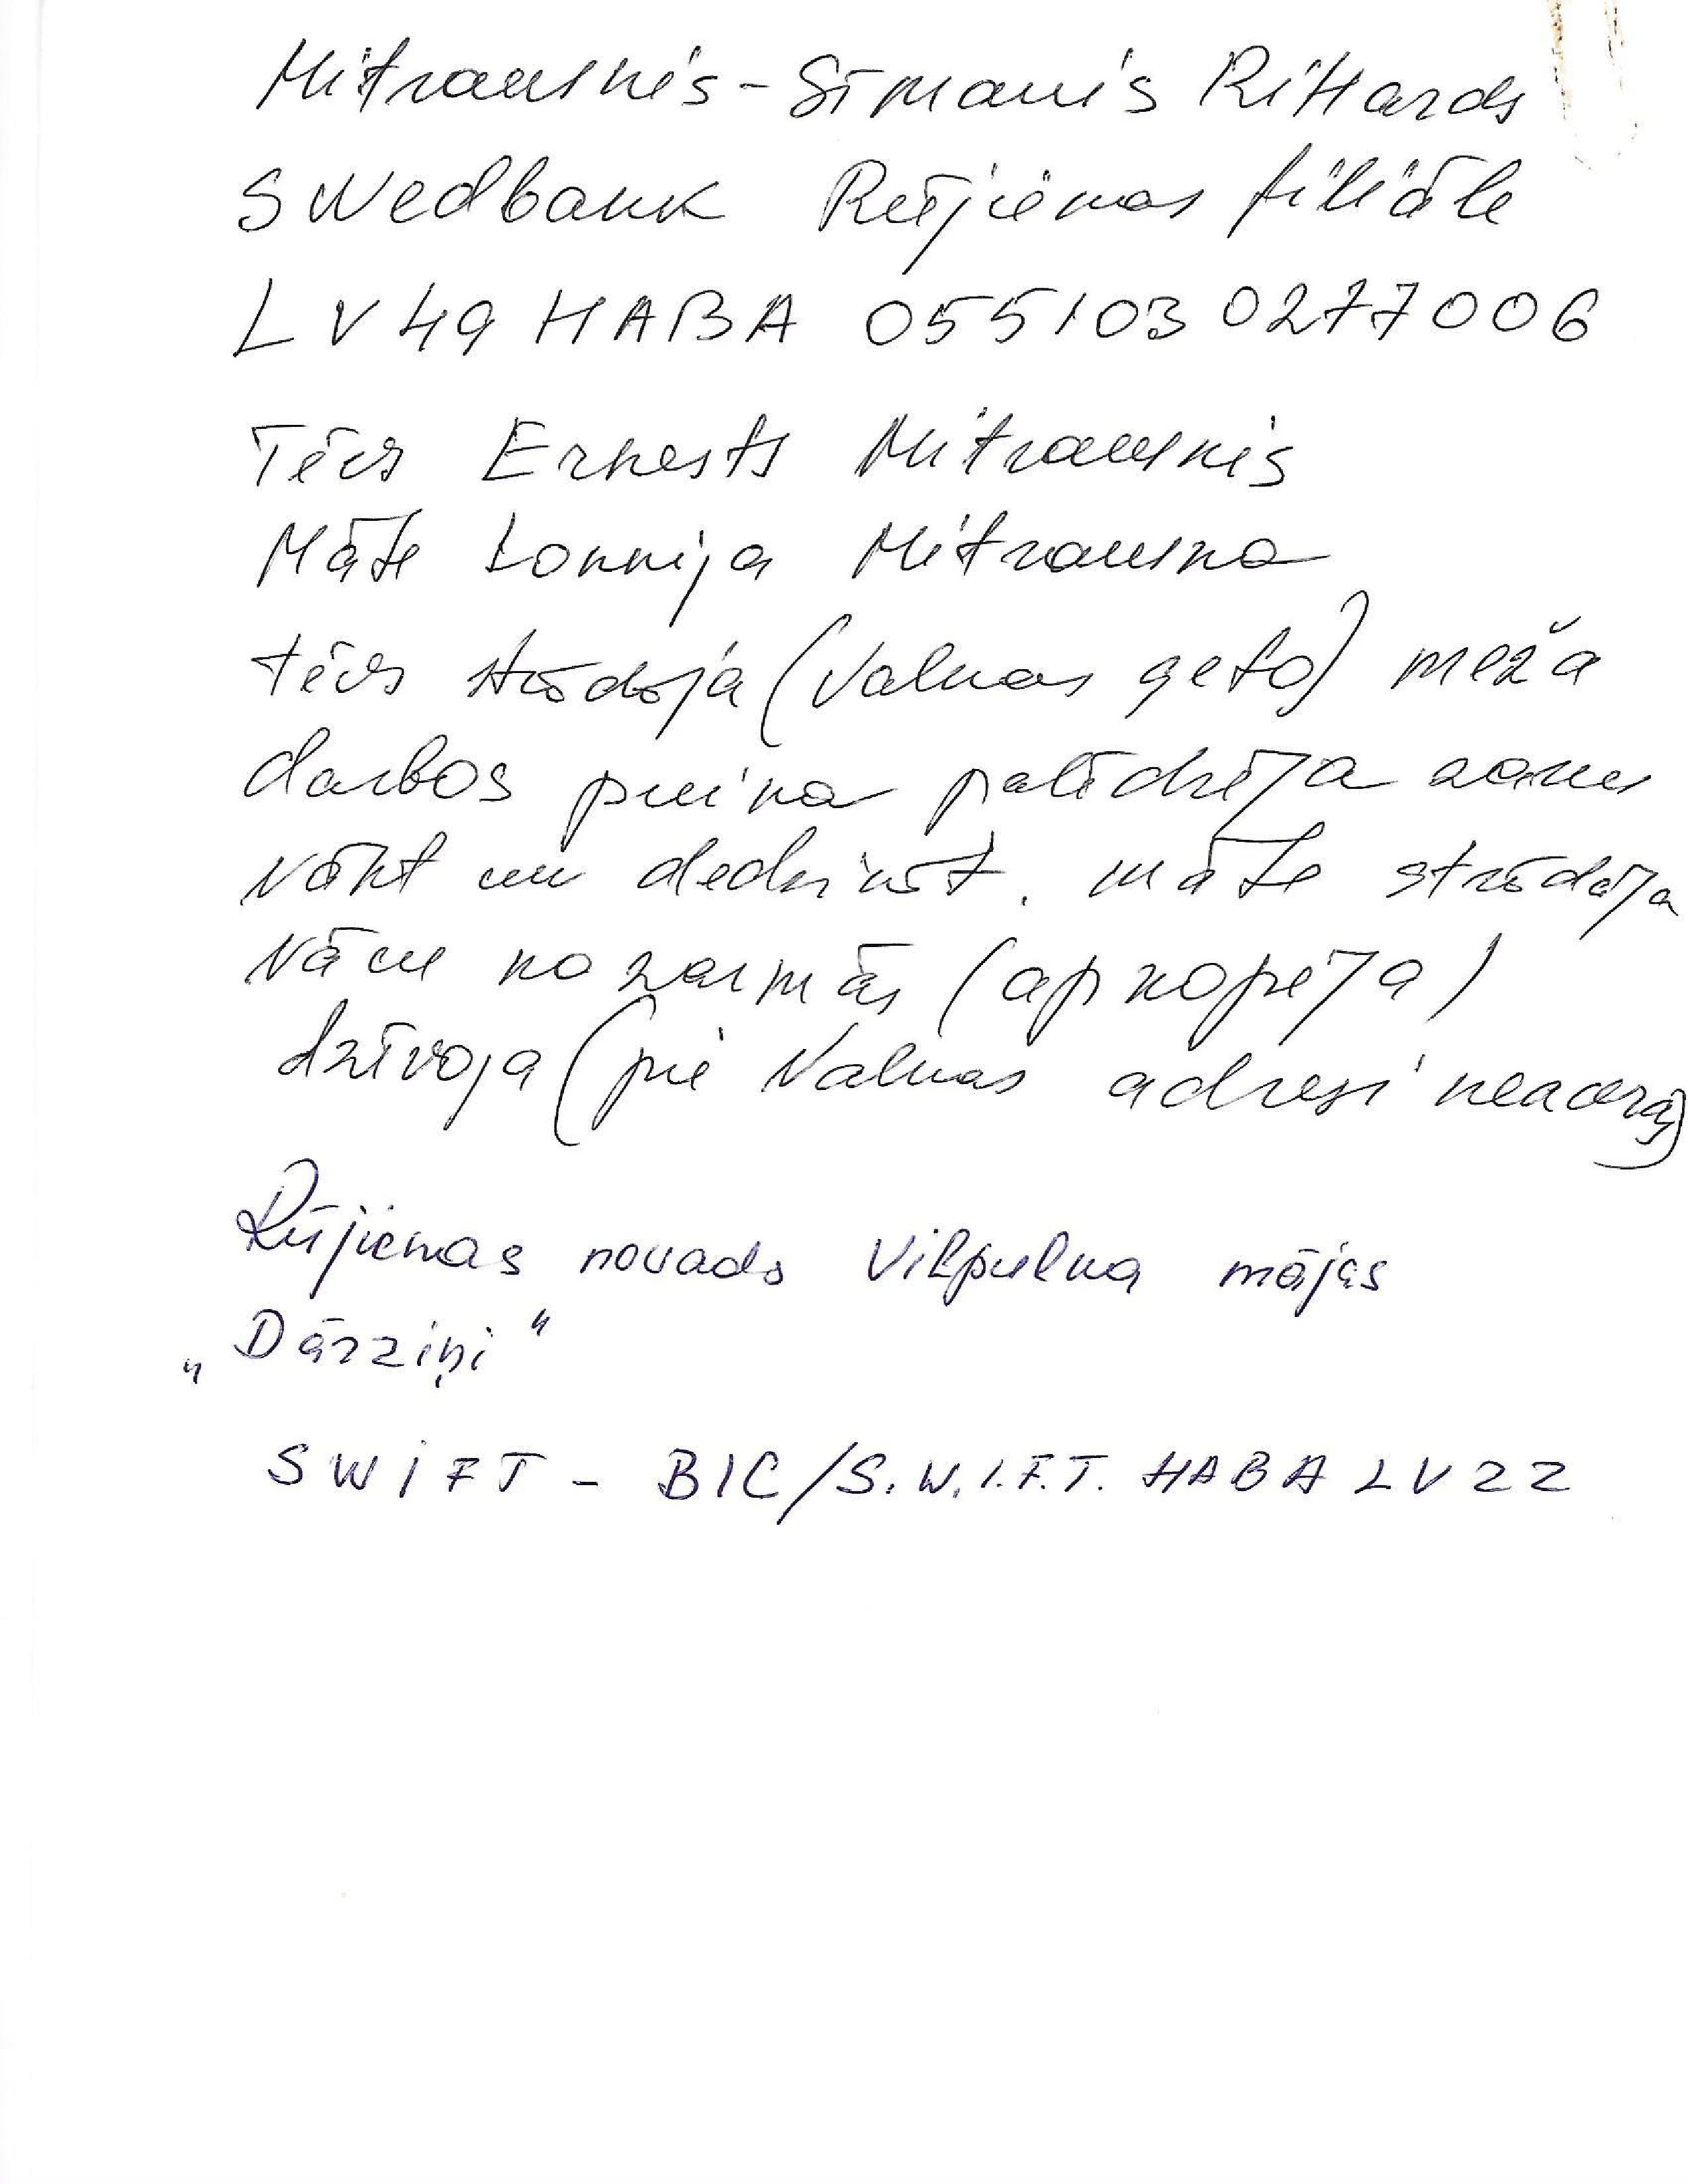 Mitrauskis - Sīmanis Rihards
Swedbank Rūjienas filiāle
LV49HABA 0551030277006
Tēvs Ernests Mitrauskis
Māte Lonnija Mitrauska
tēvs strādāja (Valkas geto) meža
darbos puika palīdzēja zarus
vākt un dedzināt. māte strādāja
vācu kazarmās (apkopēja)
dzīvoja (pie Valkas adresi neaceras)
Rūjienas novads Vilpulka mājas
„Dārziņi"
SWIFT - BIC/S.W.I.F.T. HABA LV 22